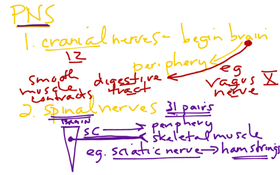 PNS
1. cranial nerves - begin brain
12
periphery
smooth muscle contracts
digestive tract
eg vagus nerve X
2. spinal nerves 31 pairs
BRAIN
SC
periphery
skeletal muscle
eg. sciatic nerve → hamstrings